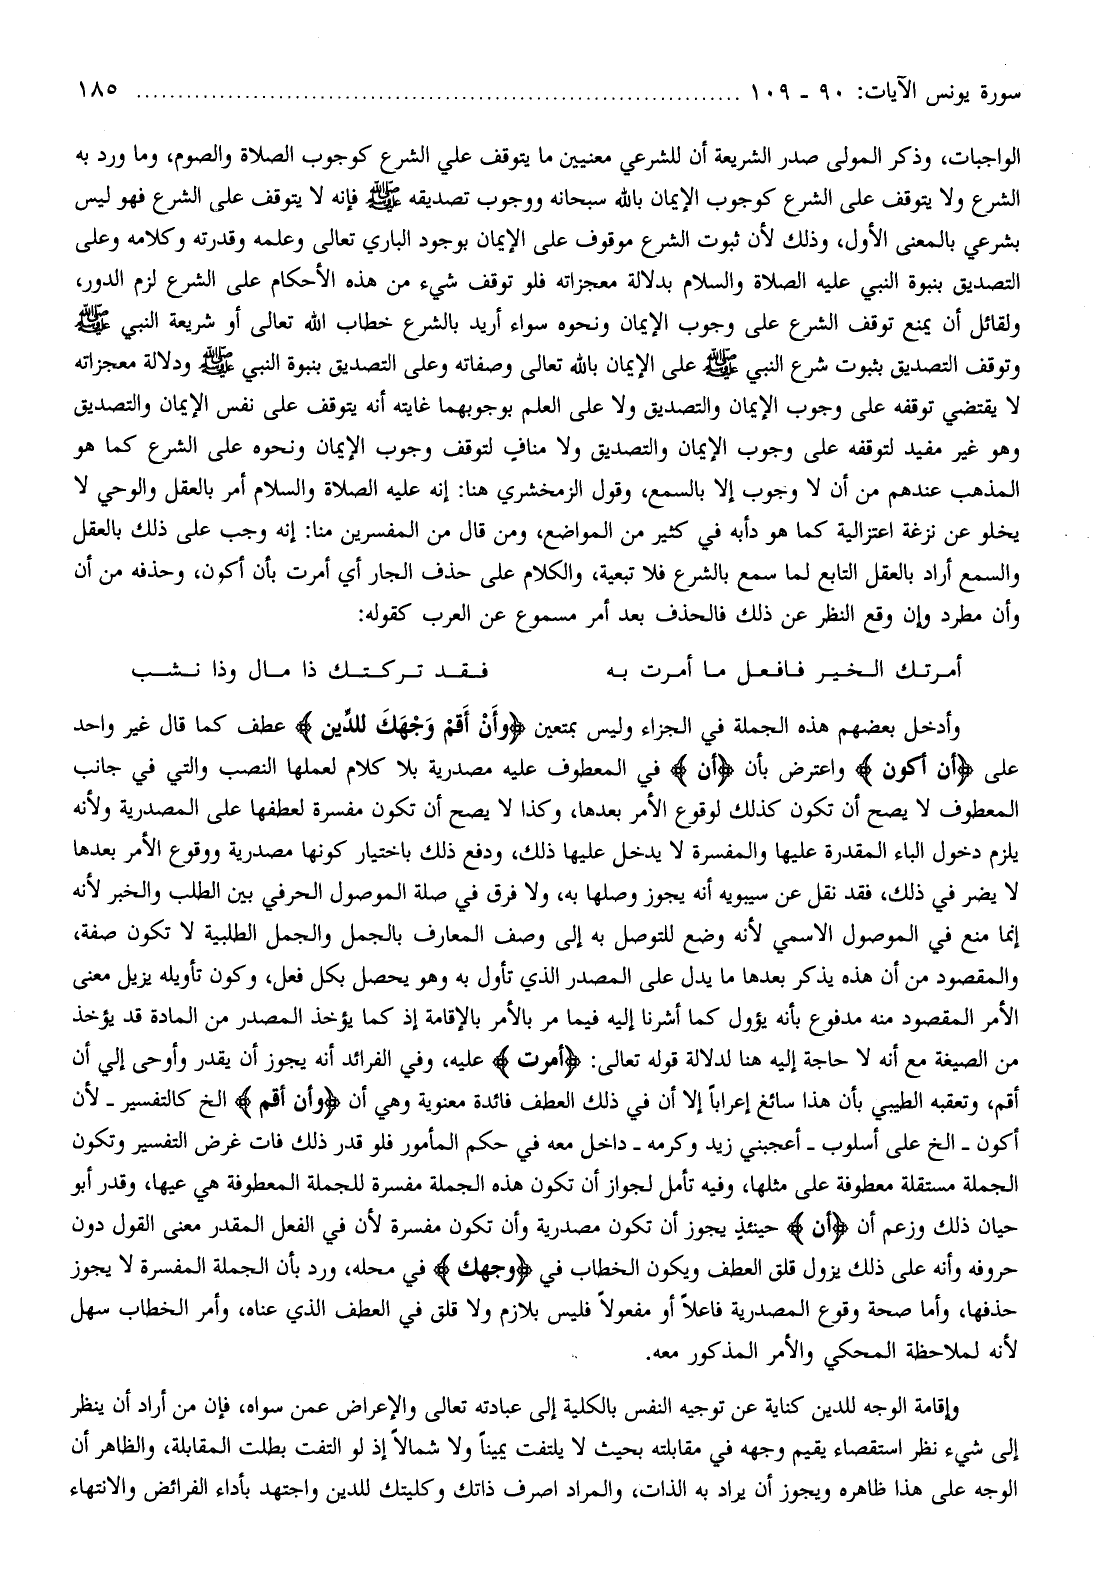 سورة يونس الآيات: ٩٠ ـ ١٠٩ ........................................................................ ١٨٥
الواجبات، وذكر المولى صدر الشريعة أن للشرعي معنيين ما يتوقف علي الشرع كوجوب الصلاة والصوم، وما ورد به
الشرع ولا يتوقف على الشرع كوجوب الإيمان بالله سبحانه ووجوب تصديقه ﷺ فإنه لا يتوقف على الشرع فهو ليس
بشرعي بالمعنى الأول، وذلك لأن ثبوت الشرع موقوف على الإيمان بوجود الباري تعالى وعلمه وقدرته وكلامه وعلى
التصديق بنبوة النبي عليه الصلاة والسلام بدلالة معجزاته فلو توقف شيء من هذه الأحكام على الشرع لزم الدور،
ولقائل أن يمنع توقف الشرع على وجوب الإيمان ونحوه سواء أريد بالشرع خطاب الله تعالى أو شريعة النبي ﷺ
وتوقف التصديق بثبوت شرع النبي ﷺ على الإيمان بالله تعالى وصفاته وعلى التصديق بنبوة النبي ﷺ ودلالة معجزاته
لا يقتضي توقفه على وجوب الإيمان والتصديق ولا على العلم بوجوبهما غايته أنه يتوقف على نفس الإيمان والتصديق
وهو غير مفيد لتوقفه على وجوب الإيمان والتصديق ولا منافٍ لتوقف وجوب الإيمان ونحوه على الشرع كما هو
المذهب عندهم من أن لا وجوب إلا بالسمع، وقول الزمخشري هنا: إنه عليه الصلاة والسلام أمر بالعقل والوحي لا
يخلو عن نزغة اعتزالية كما هو دأبه في كثير من المواضع، ومن قال من المفسرين منا: إنه وجب على ذلك بالعقل
والسمع أراد بالعقل التابع لما سمع بالشرع فلا تبعية، والكلام على حذف الجار أي أمرت بأن أكون، وحذفه من أن
وأن مطرد وإن وقع النظر عن ذلك فالحذف بعد أمر مسموع عن العرب كقوله:
أمرتك الخير فافعل ما أمرت به فقد تركتك ذا مال وذا نشب
وأدخل بعضهم هذه الجملة في الجزاء وليس بمتعين ﴿وأَنْ أَقمْ وَجْهَكَ للدِّين﴾ عطف كما قال غير واحد
على ﴿أن أكون﴾ واعترض بأن ﴿أن﴾ في المعطوف عليه مصدرية بلا كلام لعملها النصب والتي في جانب
المعطوف لا يصح أن تكون كذلك لوقوع الأمر بعدها، وكذا لا يصح أن تكون مفسرة لعطفها على المصدرية ولأنه
يلزم دخول الباء المقدرة عليها والمفسرة لا يدخل عليها ذلك، ودفع ذلك باختيار كونها مصدرية ووقوع الأمر بعدها
لا يضر في ذلك، فقد نقل عن سيبويه أنه يجوز وصلها به، ولا فرق في صلة الموصول الحرفي بين الطلب والخبر لأنه
إنما منع في الموصول الاسمي لأنه وضع للتوصل به إلى وصف المعارف بالجمل والجمل الطلبية لا تكون صفة،
والمقصود من أن هذه يذكر بعدها ما يدل على المصدر الذي تأول به وهو يحصل بكل فعل، وكون تأويله يزيل معنى
الأمر المقصود منه مدفوع بأنه يؤول كما أشرنا إليه فيما مر بالأمر بالإقامة إذ كما يؤخذ المصدر من المادة قد يؤخذ
من الصيغة مع أنه لا حاجة إليه هنا لدلالة قوله تعالى: ﴿أمرت﴾ عليه، وفي الفرائد أنه يجوز أن يقدر وأوحى إلي أن
أقم، وتعقبه الطيبي بأن هذا سائغ إعراباً إلا أن في ذلك العطف فائدة معنوية وهي أن ﴿وأن أقم﴾ الخ كالتفسير ـ لأن
أكون ـ الخ على أسلوب ـ أعجبني زيد وكرمه ـ داخل معه في حكم المأمور فلو قدر ذلك فات غرض التفسير وتكون
الجملة مستقلة معطوفة على مثلها، وفيه تأمل لجواز أن تكون هذه الجملة مفسرة للجملة المعطوفة هي عيها، وقدر أبو
حيان ذلك وزعم أن ﴿أن﴾ حينئذٍ يجوز أن تكون مصدرية وأن تكون مفسرة لأن في الفعل المقدر معنى القول دون
حروفه وأنه على ذلك يزول قلق العطف ويكون الخطاب في ﴿وجهك﴾ في محله، ورد بأن الجملة المفسرة لا يجوز
حذفها، وأما صحة وقوع المصدرية فاعلاً أو مفعولاً فليس بلازم ولا قلق في العطف الذي عناه، وأمر الخطاب سهل
لأنه لملاحظة المحكي والأمر المذكور معه.
وإقامة الوجه للدين كناية عن توجيه النفس بالكلية إلى عبادته تعالى والإعراض عمن سواه، فإن من أراد أن ينظر
إلى شيء نظر استقصاء يقيم وجهه في مقابلته بحيث لا يلتفت يميناً ولا شمالاً إذ لو التفت بطلت المقابلة، والظاهر أن
الوجه على هذا ظاهره ويجوز أن يراد به الذات، والمراد اصرف ذاتك وكليتك للدين واجتهد بأداء الفرائض والانتهاء